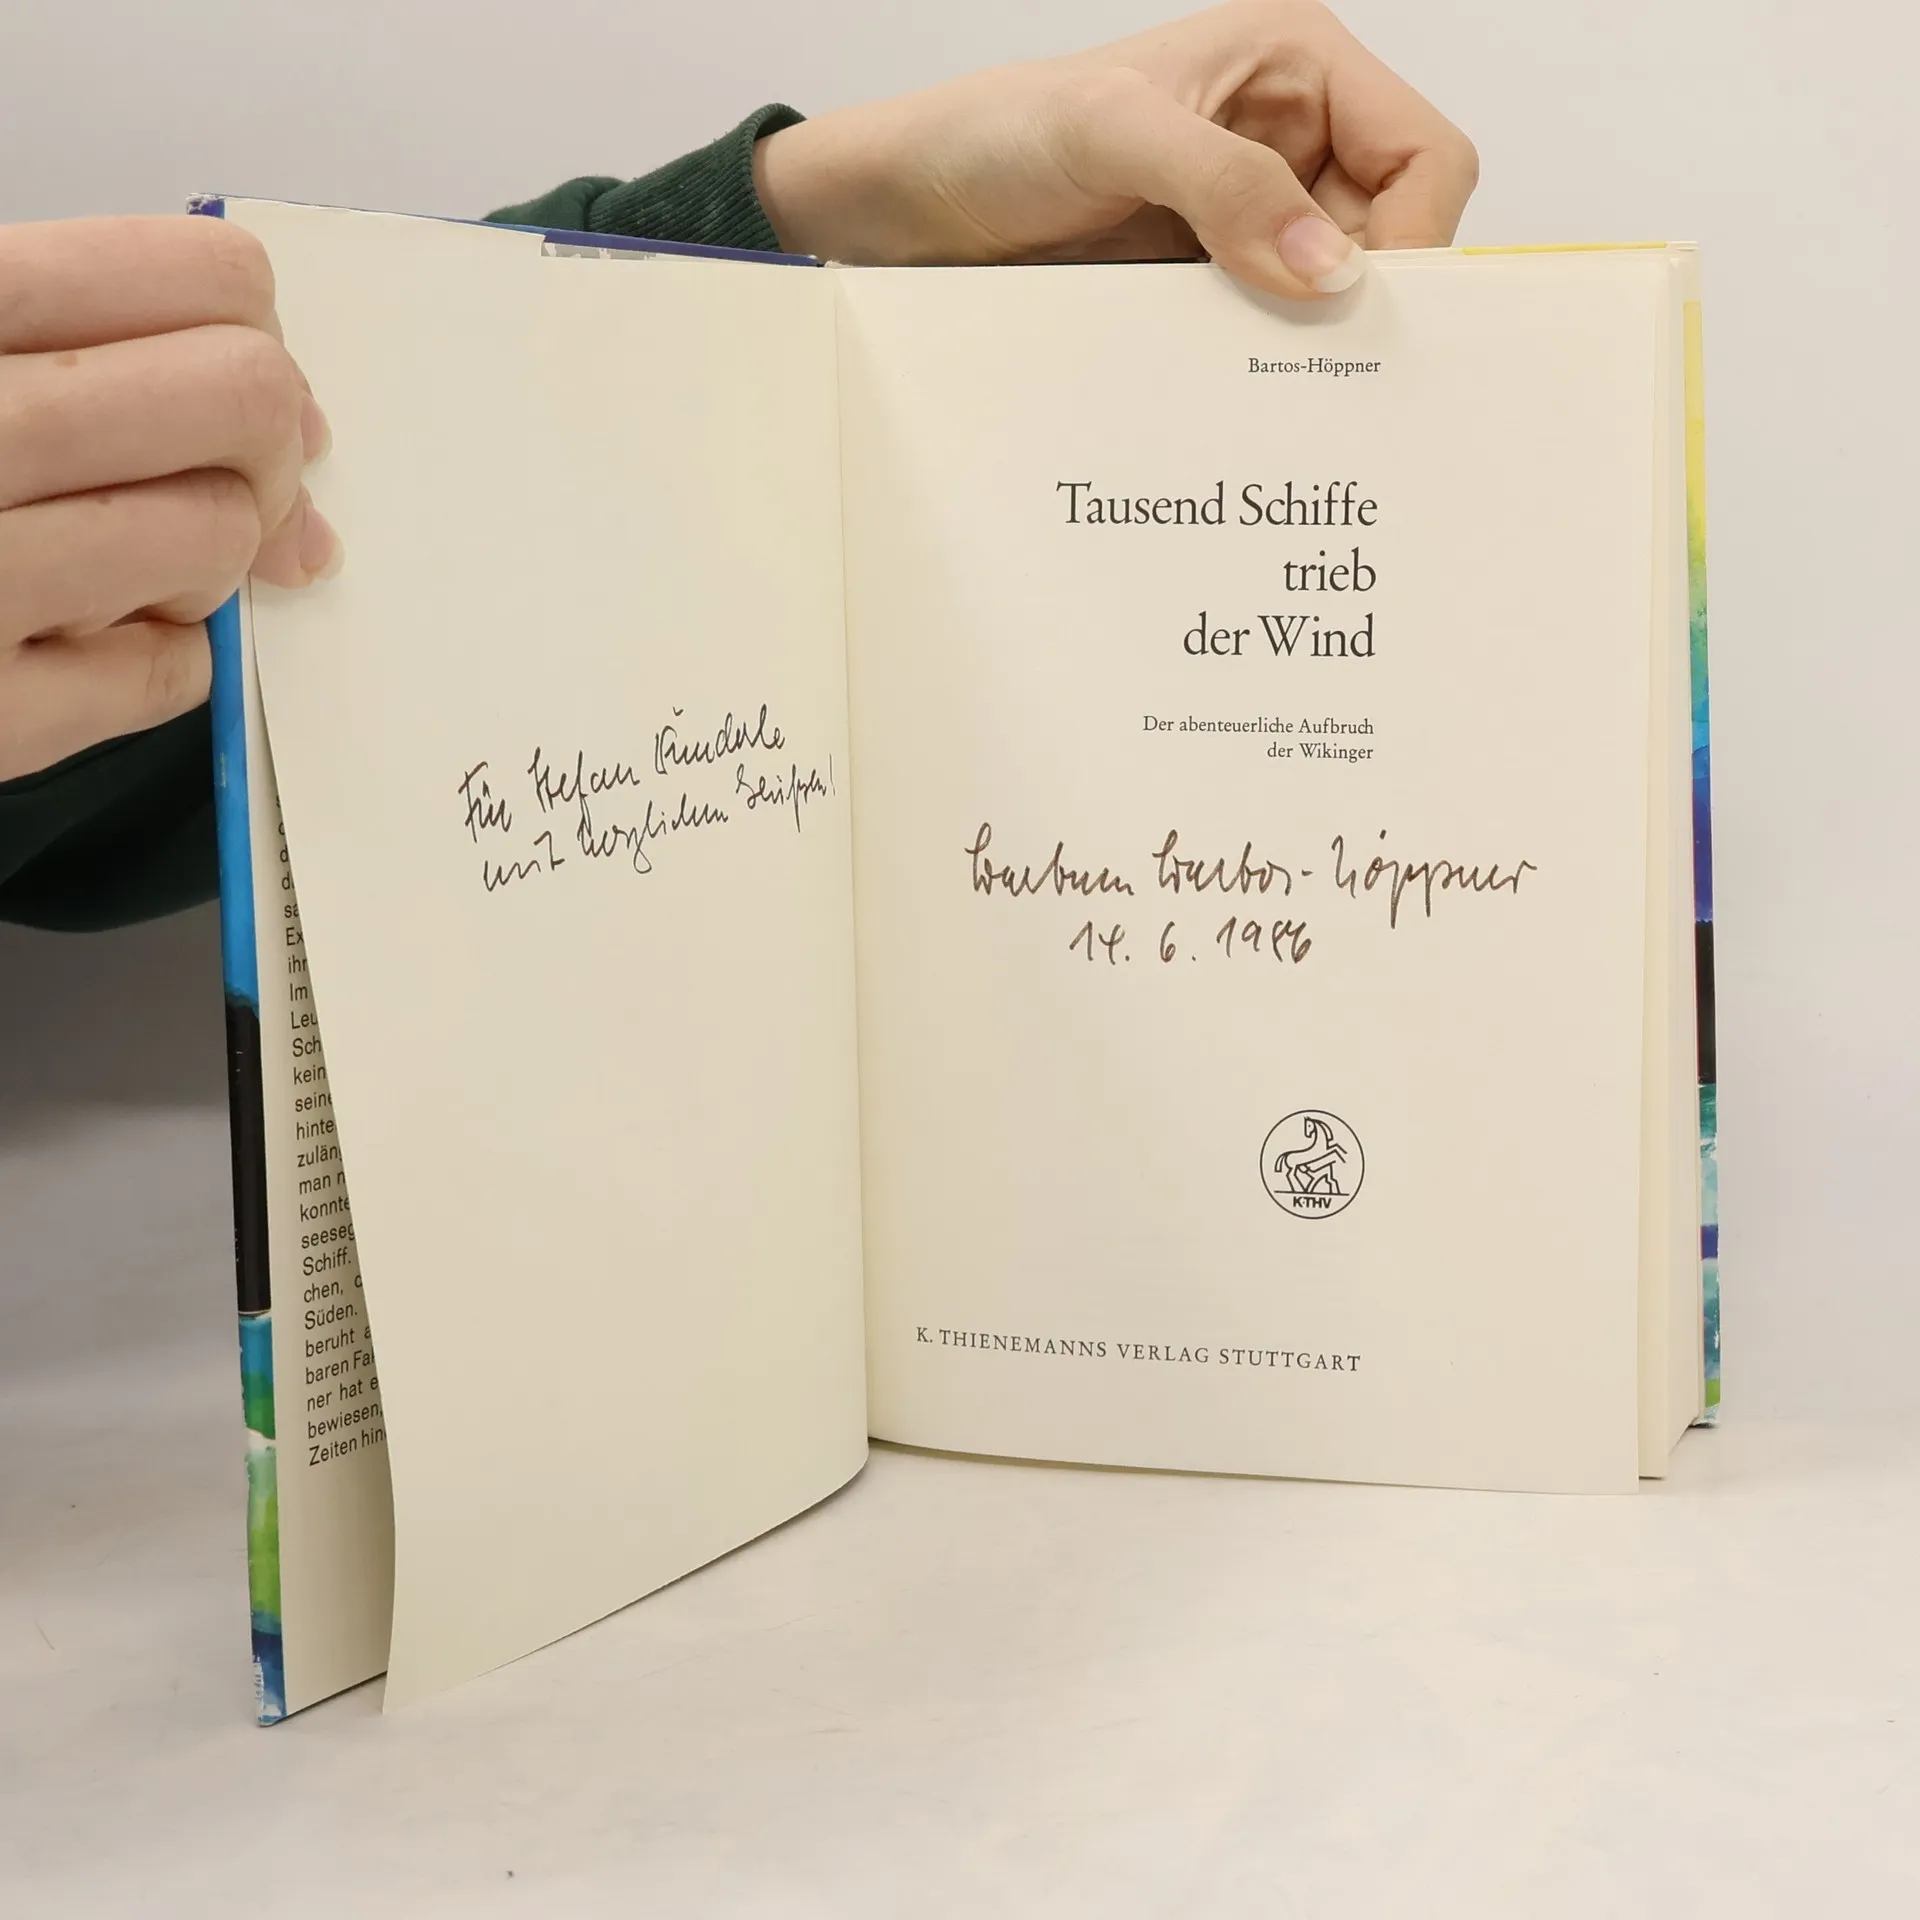 Für Stefan
mit herzlichen Grüßen!
sa
Ex
ihr
Im
Leu
Sch
kein
seine
hinte
zulän
man n
konnte
seeseg
Schiff.
chen, d
Süden.
beruht a
baren Fa
ner hat e
bewiesen,
Zeiten hin
Bartos-Höppner
Tausend Schiffe
trieb
der Wind
Der abenteuerliche Aufbruch
der Wikinger
Barbara Bartos-Höppner
14. 6. 1986
K·THV
K. THIENEMANNS VERLAG STUTTGART